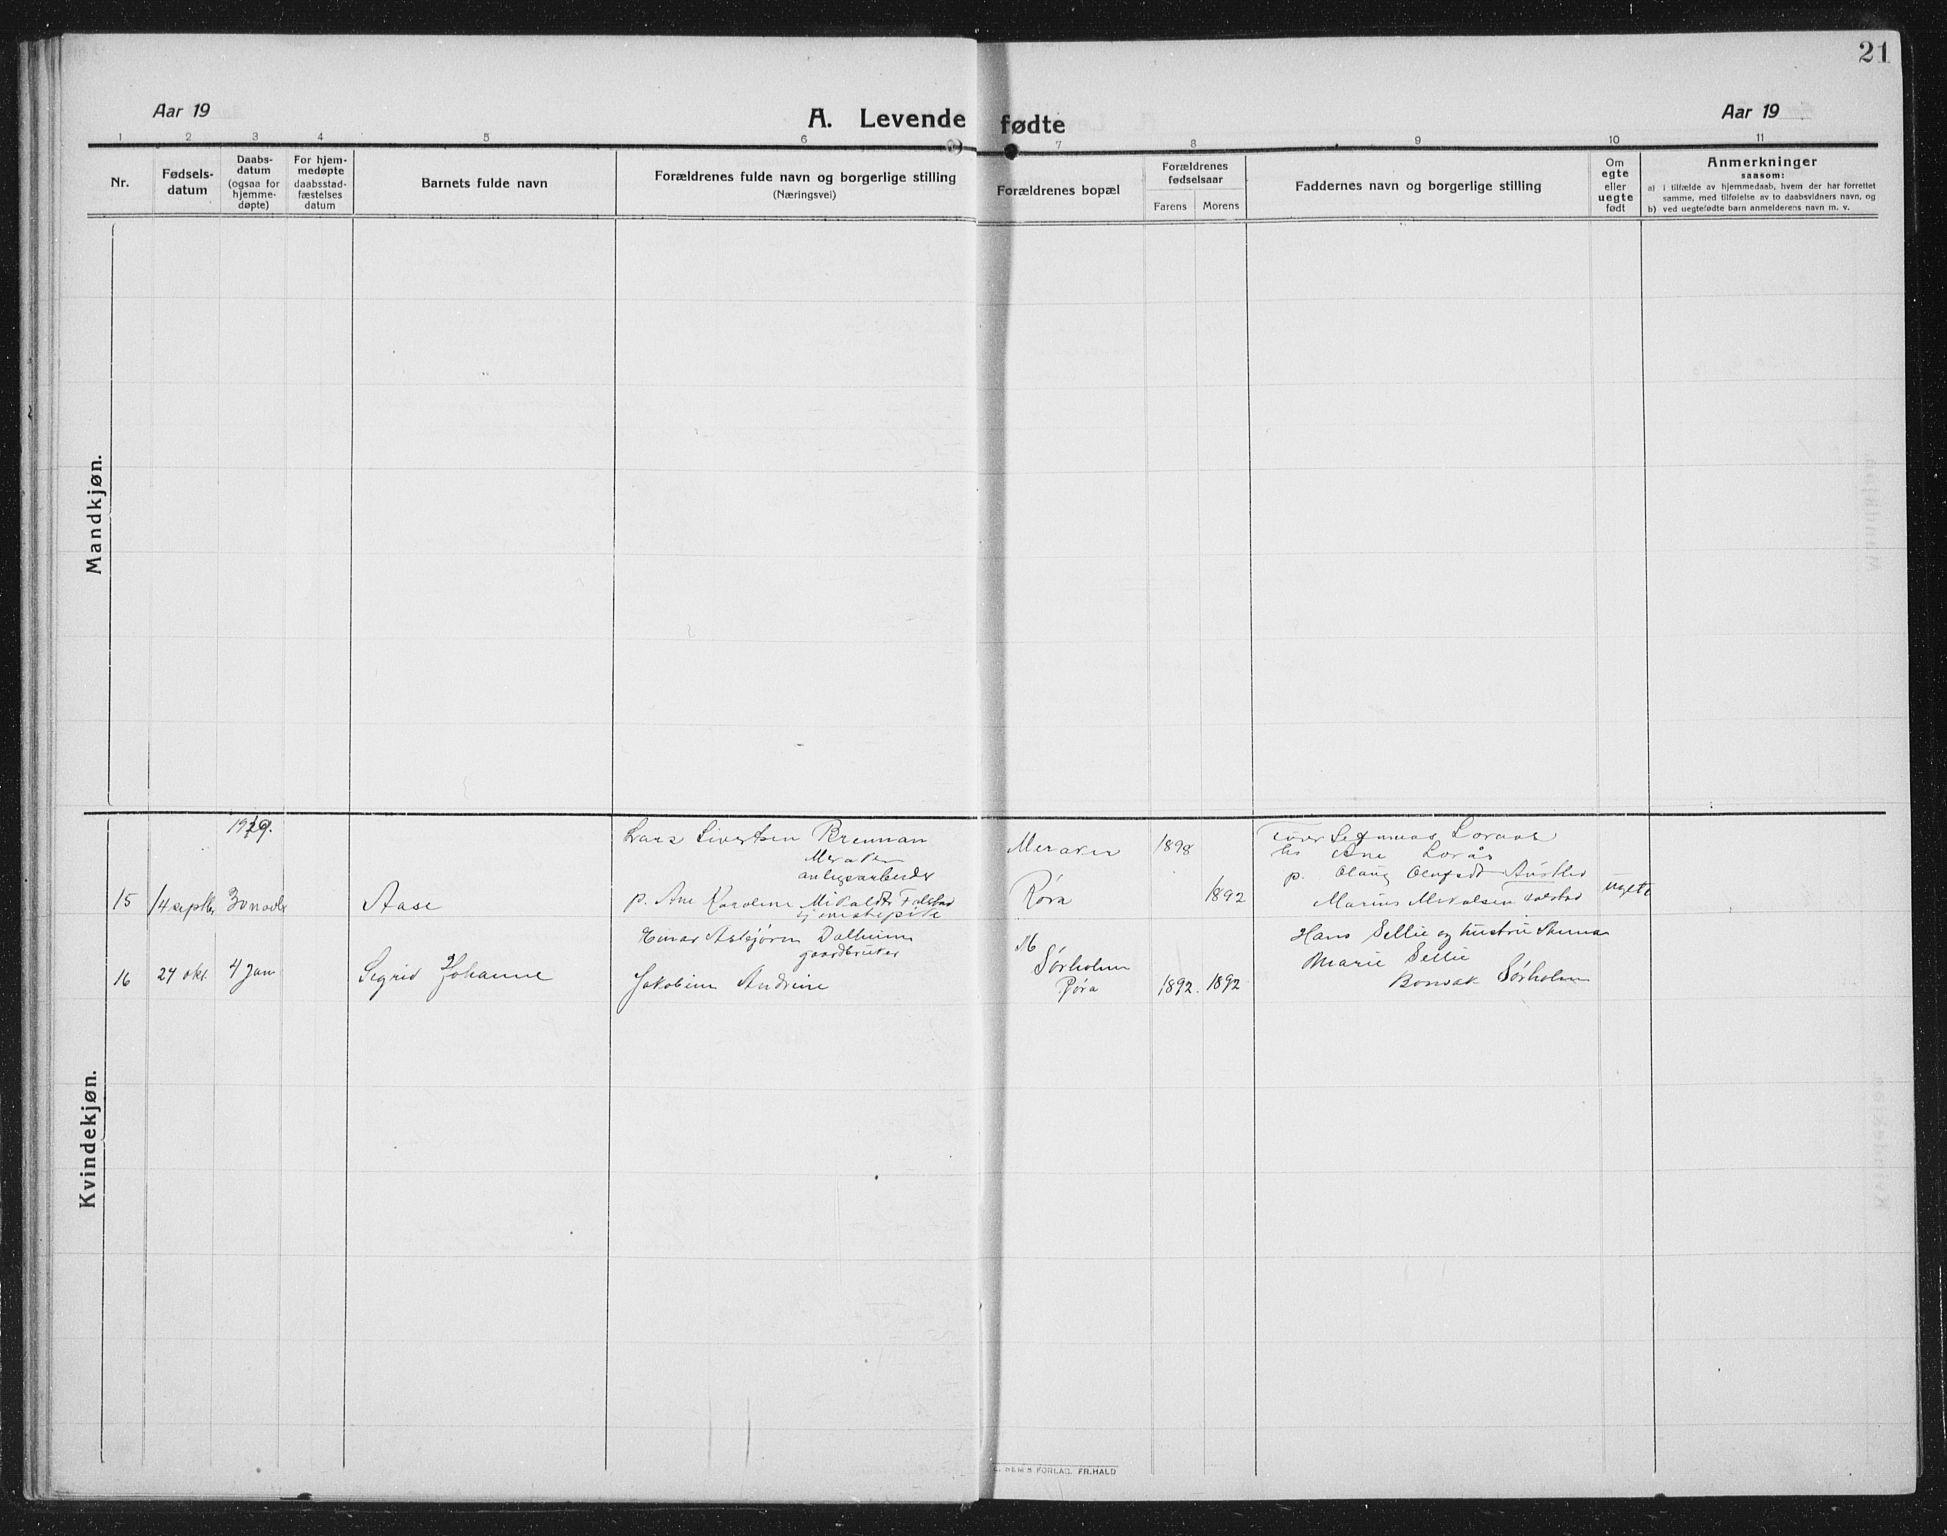 21
Aar 19
A. Levende fødte
Aar 19
1 2 3 4 5 6 7 8 9 10 11
Nr.
Fødsels-
datum
Daabs-
datum
(ogsaa for
hjemme-
døpte)
For hjem-
medøpte
daabsstad-
fæstelses
datum
Barnets fulde navn
Forældrenes fulde navn og borgerlige stilling
(Næringsvei)
Forældrenes bopæl
Forældrenes
fødselsaar
Farens Morens
Faddernes navn og borgerlige stilling
Om
egte
eller
uegte
født
Anmerkninger
saasom:
a) i tilfælde av hjemmedaab, hvem der har forrettet
samme, med tilføielse av to daabsvidners navn, og
b) ved uegtefødte barn anmelderens navn m. v.
Mandkjøn.
Kvindekjøn.
1929.
Lars Sivertsen Brennan
Meraker
anlegsarbeider
Meraker 1898
Loraas
Ane Lorås
p. Olaug
15 14 septbr 3 novbr Aase
p. Ane Karoline Mikaldtr Falstad
Røra 1892
Marius Mikalsen Falstad
uegte
Einar Asbjørn Dalheim
gaardbruker
Hans Sellie og hustru
Marie Sellie
16 24 okt. 4 Jan Sigrid Johanne
Jakobine Andrine
Sørholm
Røra 1892. 1892
Sørholm
FORLAG. FR. HALD